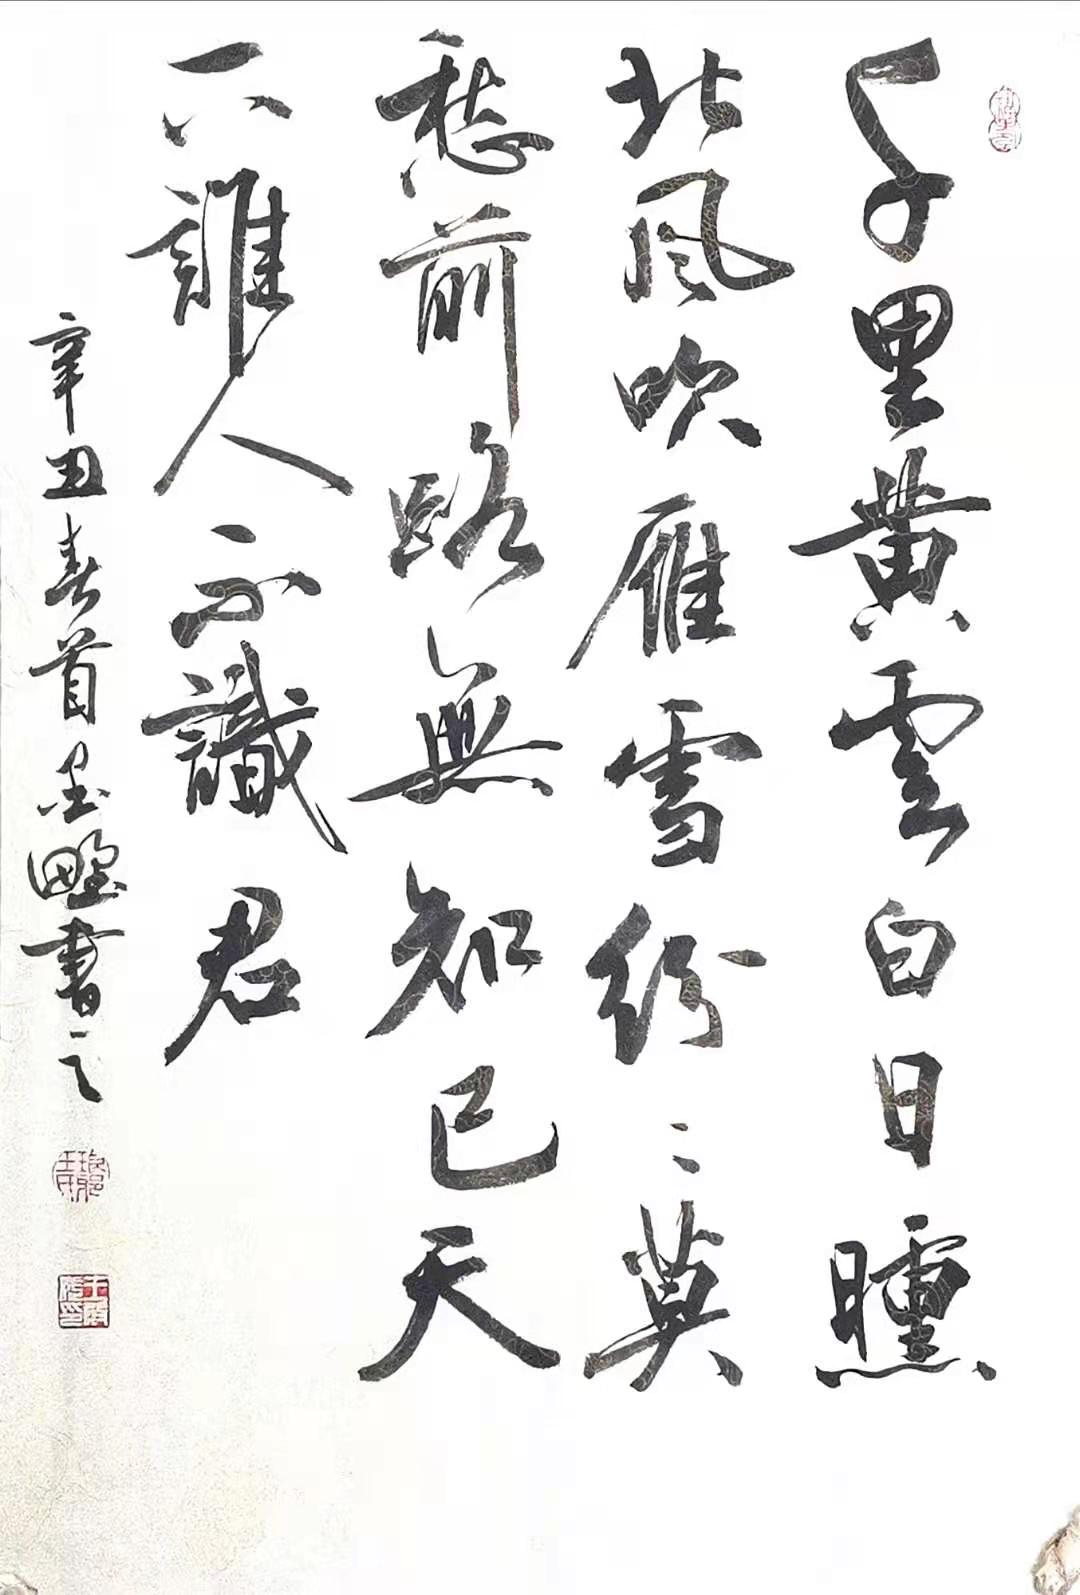 千里黄雲白日曛
北風吹雁雪紛〻莫
愁前路無知己天
下誰人不識君
辛丑春首墨野書之